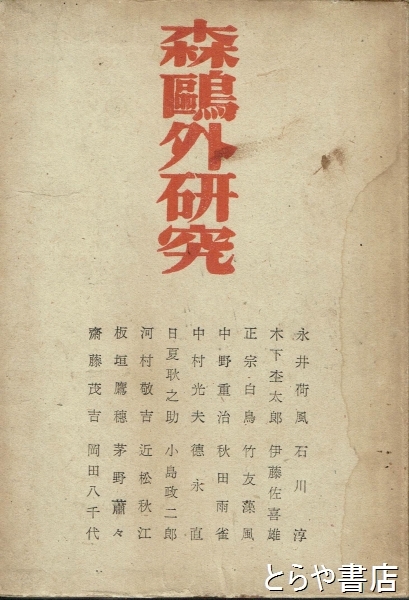 森鷗外研究
永井荷風 石川淳
木下杢太郎 伊藤佐喜雄
正宗白鳥 竹友藻風
中野重治 秋田雨雀
中村光夫 德永直
日夏耿之助 小島政二郎
河村敬吉 近松秋江
板垣鷹穂 茅野蕭々
齋藤茂吉 岡田八千代
とらや書店